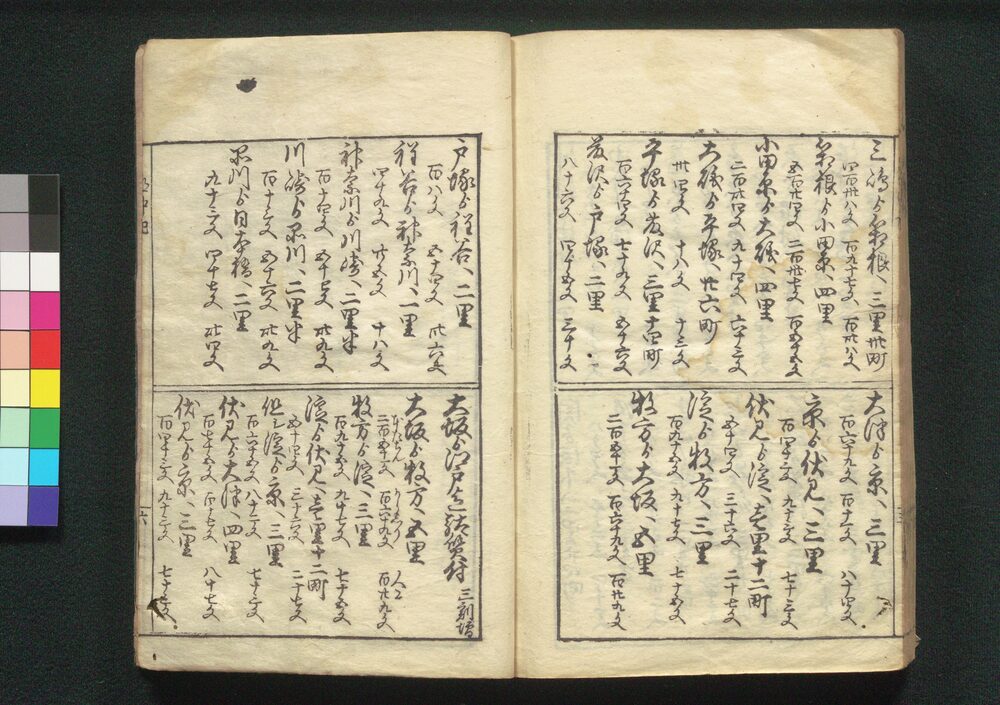 三嶋ゟ箱根へ三里卅町
四百卅八文 百九十七文 百卅八文
箱根ゟ小田原へ四里
五百廿四文 二百卅七文 百五十五文
小田原ゟ大磯へ四里
二百廿四文 九十四文 六十三文
大磯ゟ平塚へ廿六町
卅四文 十八文 十三文
平塚ゟ藤沢へ三里十四町
百六十四文 七十九文 五十六文
藤沢ゟ戸塚へ二里
八十六文 四十五文 三十文
大津ゟ京へ三里
百六十九文 百十二文 八十四文
京ゟ伏見へ三里
百四十三文 九十三文 七十三文
伏見ゟ淀へ壱里十二町
五十四文 三十六文 二十七文
淀ゟ牧方へ三里
百九十五文 九十七文 七十五文
牧方ゟ大坂へ五里
二百五十一文 百六十九文 百廿九文
戸塚ゟ程谷へ二里
百八文 五十四文 卅六文
程谷ゟ神奈川へ一里
四十九文 廿五文 十八文
神奈川ゟ川崎へ二里半
百十四文 五十七文 卅九文
川崎ゟ品川へ二里半
百十三文 五十六文 卅九文
品川ゟ日本橋へ二里
九十三文 四十七文 卅四文
大坂ゟ江戸迄駄賃付 三割増
大坂ゟ牧方へ五里
二百五十一文 百六十九文 百廿九文
牧方ゟ淀へ三里
百九十五文 九十七文 七十五文
淀ゟ伏見へ壱里十二町
五十四文 三十六文 二十七文
但し淀ゟ京へ三里
百六十五文 八十二文 七十三文
伏見ゟ大津へ四里
百七十五文 百十七文 八十七文
伏見ゟ京へ三里
百四十三文 九十三文 七十三文